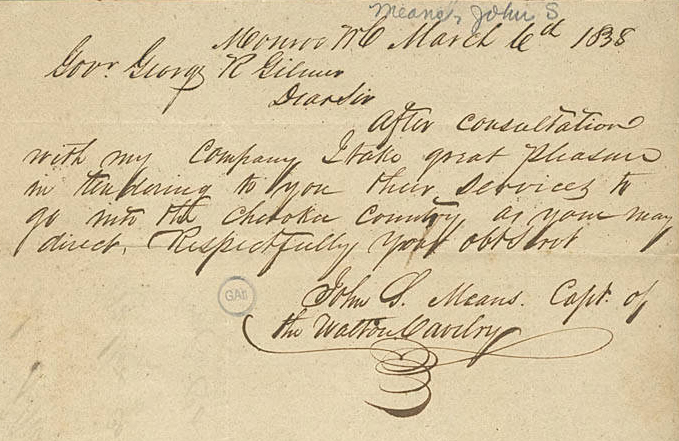 Means, John S
Monroe WC March 6th 1838
Govr. George R Gilmer
Dear Sir
After consultation
with my company I take great pleasure
in tendering to you their services to
go into the Cherokee Country as your may
direct. Respectfully your obt Svt
GAH
John S. Means. Capt. of
the Walton Cavilry